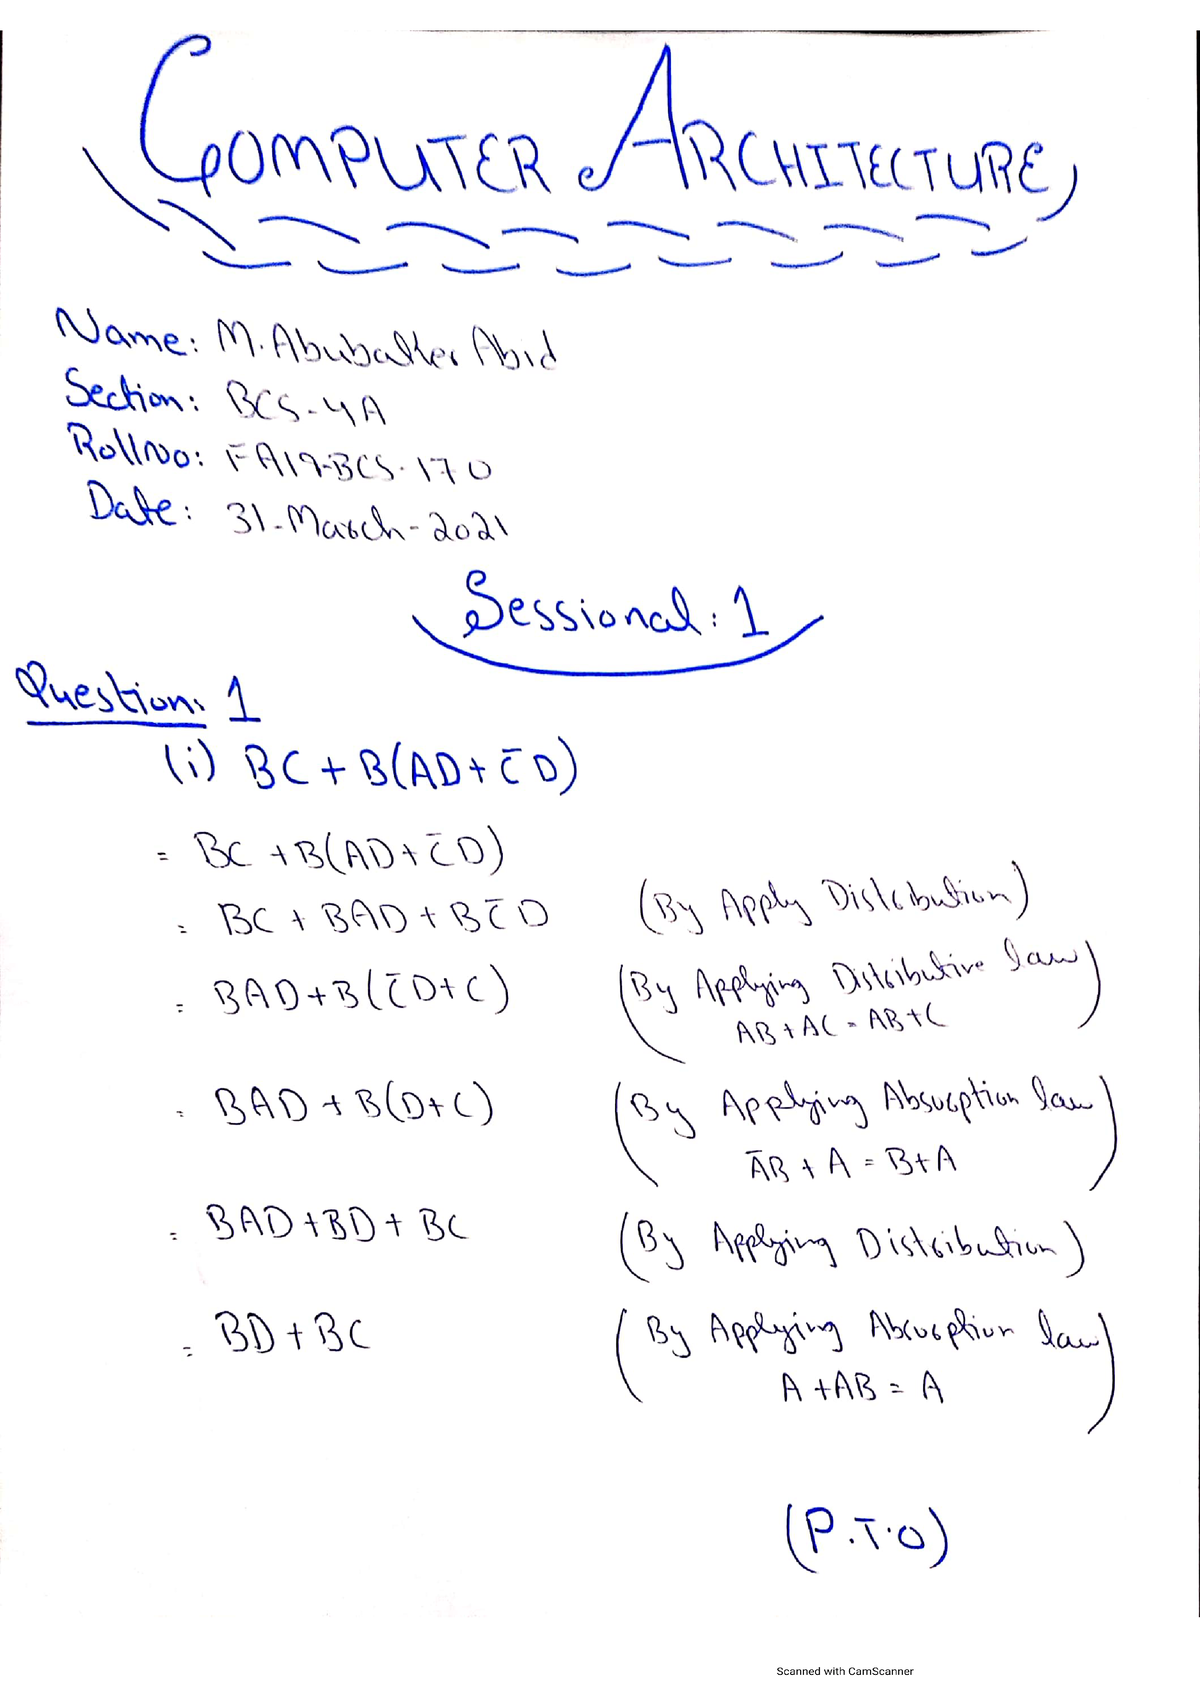 COMPUTER ARCHITECTURE
Name: M. Abubakker Abid
Section: BCS-4A
Roll No: FA19-BCS-170
Date: 31-March-2021
Sessional: 1
Question: 1
(i) BC + B(AD + C̄D)
= BC + B(AD + C̄D)
= BC + BAD + BC̄D (By Apply Distribution)
= BAD + B(C̄D + C) (By Applying Distributive law)
AB + AC = AB + C
= BAD + B(D + C) (By Applying Absorption law)
ĀB + A = B + A
= BAD + BD + BC (By Applying Distribution)
= BD + BC (By Applying Absorption law)
A + AB = A
(P.T.O)
Scanned with CamScanner